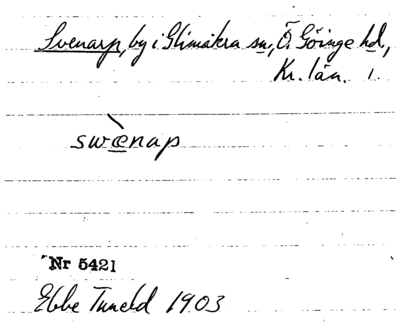 Svenarp, by i Glimåkra sn, Ö. Göinge hd,
Kr. län. 1.
swæ̀nap
Nr 5421
Ebbe Tuneld 1903